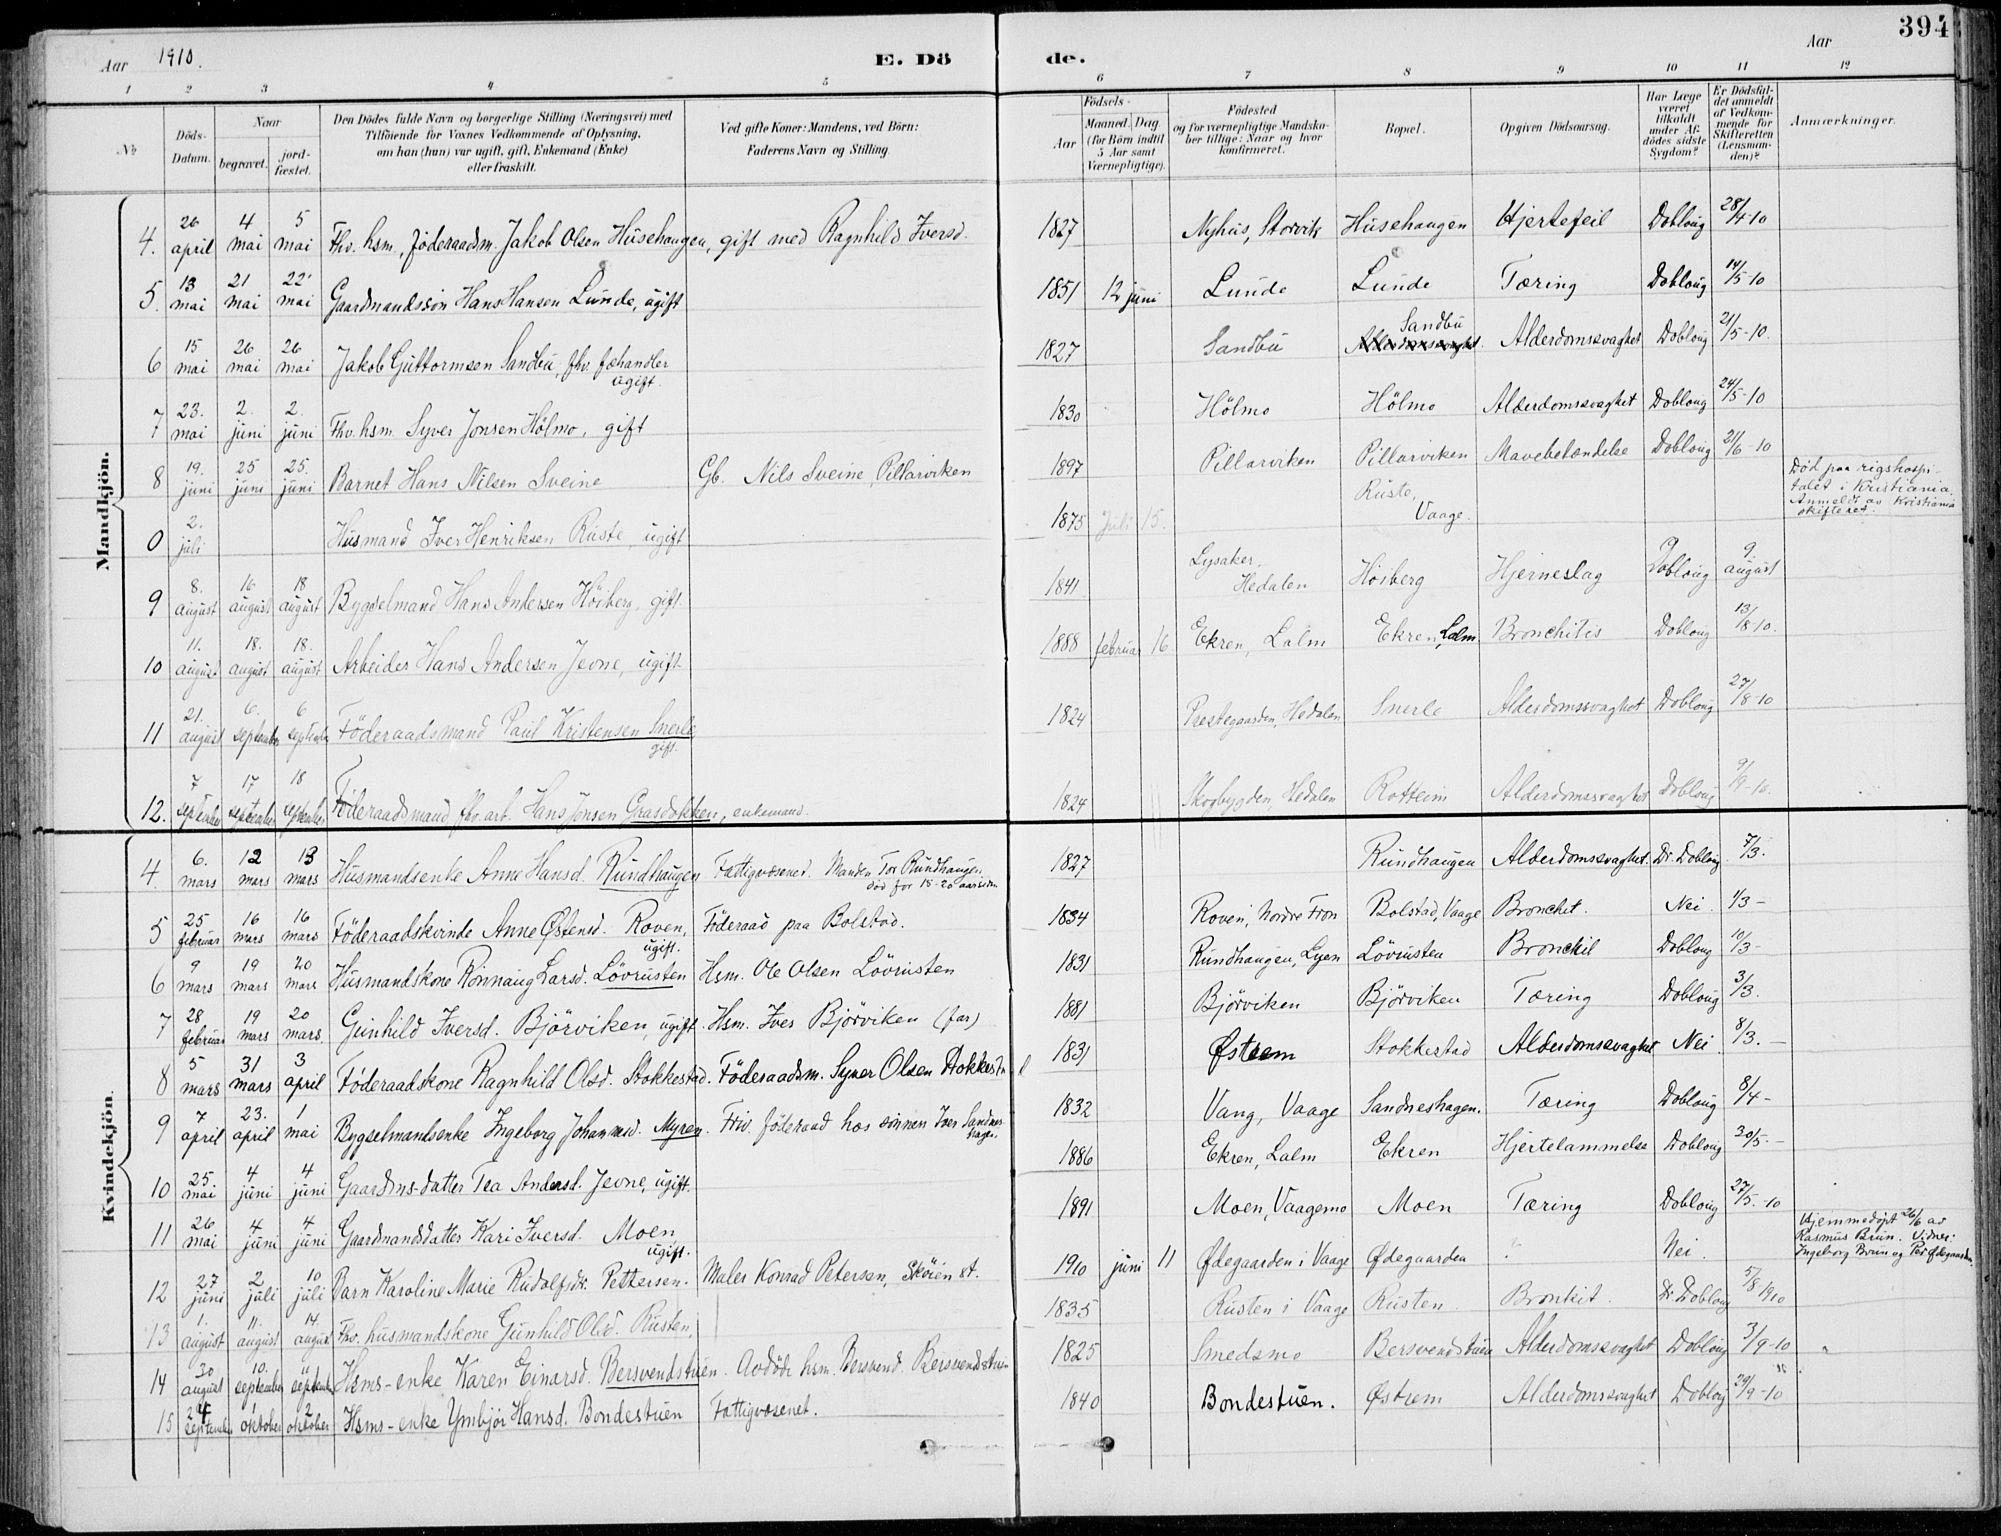 394
Aar 1910. E. Dö de. Aar
1 2 3 4 5 6 7 8 9 10 11 12
№
Döds-Datum.
Naar
begravet. jord-fæstet.
Den Dödes fulde Navn og borgerlige Stilling (Næringsvei) med
Tilföiende for Voxnes Vedkommende af Oplysning,
om han (hun) var ugift, gift, Enkemand (Enke)
eller fraskilt.
Ved gifte Koner: Mandens, ved Börn:
Faderens Navn og Stilling
Födsels-
Aar Maaned. Dag
(for Börn indtil
5 Aar samt
Værnepligtige).
Födested
og for værnepligtige Mandska-
ber tillige: Naar og hvor
konfirmeret.
Bopæl.
Opgiven Dödsaarsag.
Har Læge
været
tilkaldt
under Af-
dödes sidste
Sygdom?
Er Dödsfal-
det anmeldt
af Vedkom-
mende for
Skifteretten
(Lensman-
den)?
Anmærkninger.
Mandkjön.
4. 26 april 4 mai 5 mai Fhv. hsm., föderaadsm. Jakob Olsen Husehaugen, gift med Ragnhild Iversd. 1827 Nyhus, Storvik Husehaugen Hjertefeil Dobloug 28/4-10
5. 13 mai 21 mai 22 mai Gaardmandssön Hans Hansen Lunde, ugift 1851 12 juni Lunde Lunde Tæring Dobloug 14/5-10
6 15 mai 26 mai 26 mai Jakob Guttormsen Sandbu, fhv. fæhandler ugift. 1827 Sandbu Sandbu Alderdomssvaghet Dobloug 21/5-10.
7 23. mai 2. juni 2. juni Fhv. hsm. Syver Jonsen Hölmo, gift 1830 Hölmo Hölmo Alderdomssvaghet Dobloug 24/5-10
8 19. juni 25 juni 25. juni Barnet Hans Nilsen Sveine Gb. Nils Sveine, Pillarviken 1897 Pillarviken Pillarviken Mavebetændelse Dobloug 21/6-10
0 2. juli Husmand Iver Henriksen Ruste, ugift 1875 Juli 15. Ruste, Vaage. Död paa rigshospi-
talet i Kristiania.
Anmeldt av Kristiania
skifteret.
9 8. august 16 august 18 august Bygselmand Hans Andersen Höiberg, gift. 1841 Lysaker, Hedalen Höiberg Hjerneslag Dobloug 9. august
10 11. august 18. august 18. august Arbeider Hans Andersen Jevne, ugift 1888 februar 16 Ekren, Lalm Ekren, Lalm Bronchitis Dobloug 13/8-10.
11 21. august 6. september 6 september Föderaadsmand Paul Kristensen Snerle gift. 1824 Prestegaarden, Hedalen Snerle Alderdomssvaghet Dobloug 27/8-10
12. 7 september 17 september 18 september Föderaadsmand fhv. arb. Hans Jonsen Grasdokken, enkemand. 1824 Skogbygden, Hedalen Rotteim Alderdomssvaghet Dobloug 9/9-10.
Kvindekjön.
4. 6. mars 12 mars 13 mars Husmandsenke Anne Hansd. Rundhaugen Fattigvæsenet. Manden Tor Rundhaugen, död for 15-20 aar siden 1827 Rundhaugen Alderdomssvaghet. Dr. Dobloug 7/3.
5 25 februar 16 mars 16 mars Föderaadskvinde Anne Østensd. Roven, ugift. Föderaad paa Bolstad. 1834 Roven, Nordre Fron Bolstad, Vaage Bronchit. Nei. 1/3-
6 9 mars 19 mars 20 mars Husmandskone Rönnaug Larsd. Lövrusten Hsm. Ole Olsen Lövrusten 1831 Rundhaugen, Lyen Lövrusten Bronckit Dobloug 10/3-
7 28 februar 19 mars 20 mars. Gunhild Iversd. Björviken, ugift. Hsm. Iver Björviken (far) 1881 Björviken Björviken Tæring Dobloug 3/3.
8 5 mars 31 mars 3 april Föderaadskone Ragnhild Olsd. Stokkestad. Föderaadsm. Syver Olsen Stokkestad 1831 Østrem Stokkestad Alderdomssvaghet Nei. 8/3.-
9 7 april 23. april 1 mai Bygselmandsenke Ingeborg Johannesd. Myren. Friv. föderaad hos sönnen Iver Sandneshagen. 1832 Vang, Vaage Sandneshagen. Tæring Dobloug 8/4-
10 25 mai 4 juni 4 juni Gaardms-datter Tea Andersd. Jevne, ugift. 1886 Ekren, Lalm Ekren Hjertelammelse Dobloug 30/5.-
11 26 mai 4 juni 4 juni Gaardmandsdatter Kari Iversd. Moen, ugift. 1891 Moen, Vaagemo Moen Tæring Dobloug 27/5.-10
12 27 juni 2 juli 10 juli Barn Karoline Marie Rudolfsdr. Pettersen. Maler Konrad Petersen, Sköien st. 1910 juni 11 Ødegaarden i Vaage Ødegaarden Nei. Hjemmedöpt 26/6 av
Rasmus Brun. Vidner:
Ingeborg Brun og Per Ødegaarden.
13 1. august 11. august 14. august Fhv. husmandskone Gunhild Olsd. Rusten, 1835 Rusten i Vaage Rusten. Bronkit. Dr. Dobloug 5/8 1910
14 30 august 10. september 11 september Hsms-enke Karen Einarsd. Bersvendstuen. Avdöde hsm. Bersvend Bersvendstuen 1825 Smedsmo Bersvendstuen Alderdomssvaghet Dobloug 3/9-10
15 24 september 1 oktober 2 oktober Hsms-enke Ymbjör Hansd. Bondestuen Fattigvæsenet. 1840 Bondestuen. Østrem Alderdomssvaghet Dobloug 29/9-10